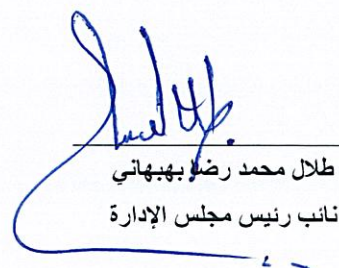 طلال محمد رضا بهبهاني
نائب رئيس مجلس الإدارة